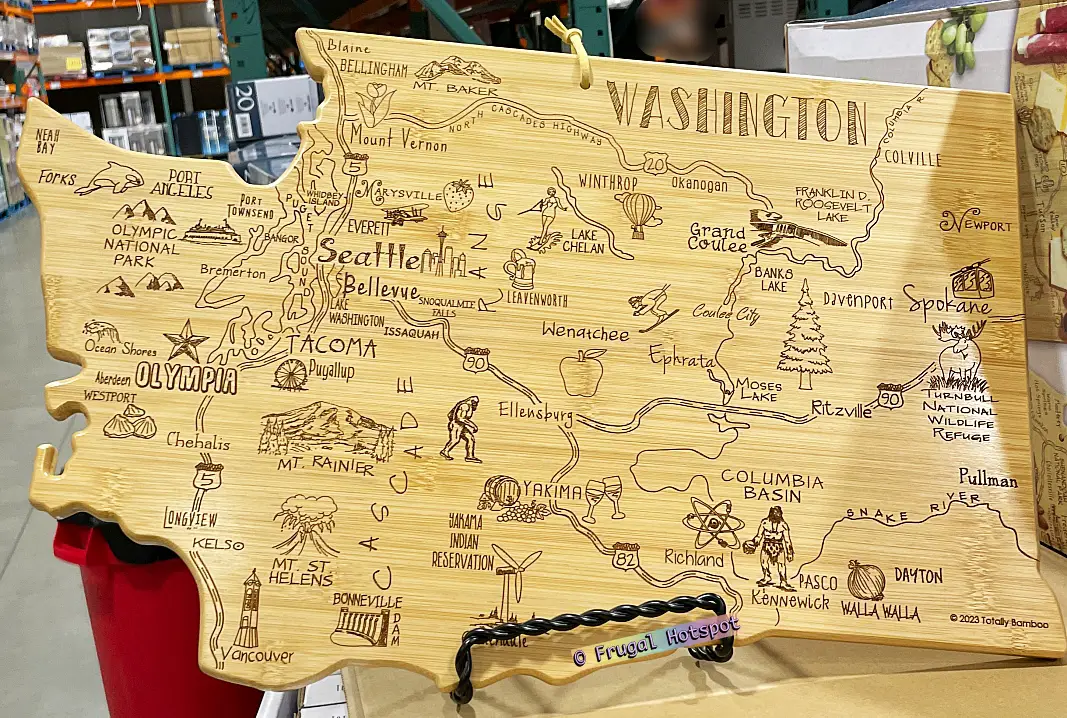 Blaine
BELLINGHAM
MT. BAKER
WASHINGTON
COLUMBIA R.
NEAH
BAY
Mount Vernon
NORTH CASCADES HIGHWAY
20
COLVILLE
FORKS
PORT
ANGELES
5
WHIDBEY
ISLAND
MARYSVILLE
WINTHROP
Okanogan
FRANKLIN D.
ROOSEVELT
LAKE
PORT
TOWNSEND
PUGET
SOUND
EVERETT
NEWPORT
OLYMPIC
NATIONAL
PARK
BANGOR
LAKE
CHELAN
Grand
Coulee
Seattle
Bremerton
BANKS
LAKE
Bellevue
SNOQUALMIE
FALLS
LEAVENWORTH
DAVENPORT
Spokane
LAKE
WASHINGTON
ISSAQUAH
Coulee City
Wenatchee
Ocean Shores
TACOMA
90
Ephrata
Aberdeen
OLYMPIA
Puyallup
MOSES
LAKE
Ritzville
90
TURNBULL
NATIONAL
WILDLIFE
REFUGE
WESTPORT
CASCADE RANGES
Ellensburg
Chehalis
MT. RAINIER
5
COLUMBIA
BASIN
Pullman
YAKIMA
SNAKE RIVER
LONGVIEW
YAKAMA
INDIAN
RESERVATION
KELSO
82
Richland
MT. ST.
HELENS
PASCO
DAYTON
Kennewick
WALLA WALLA
BONNEVILLE
DAM
© 2023 Totally Bamboo
Vancouver
© Frugal Hotspot
20